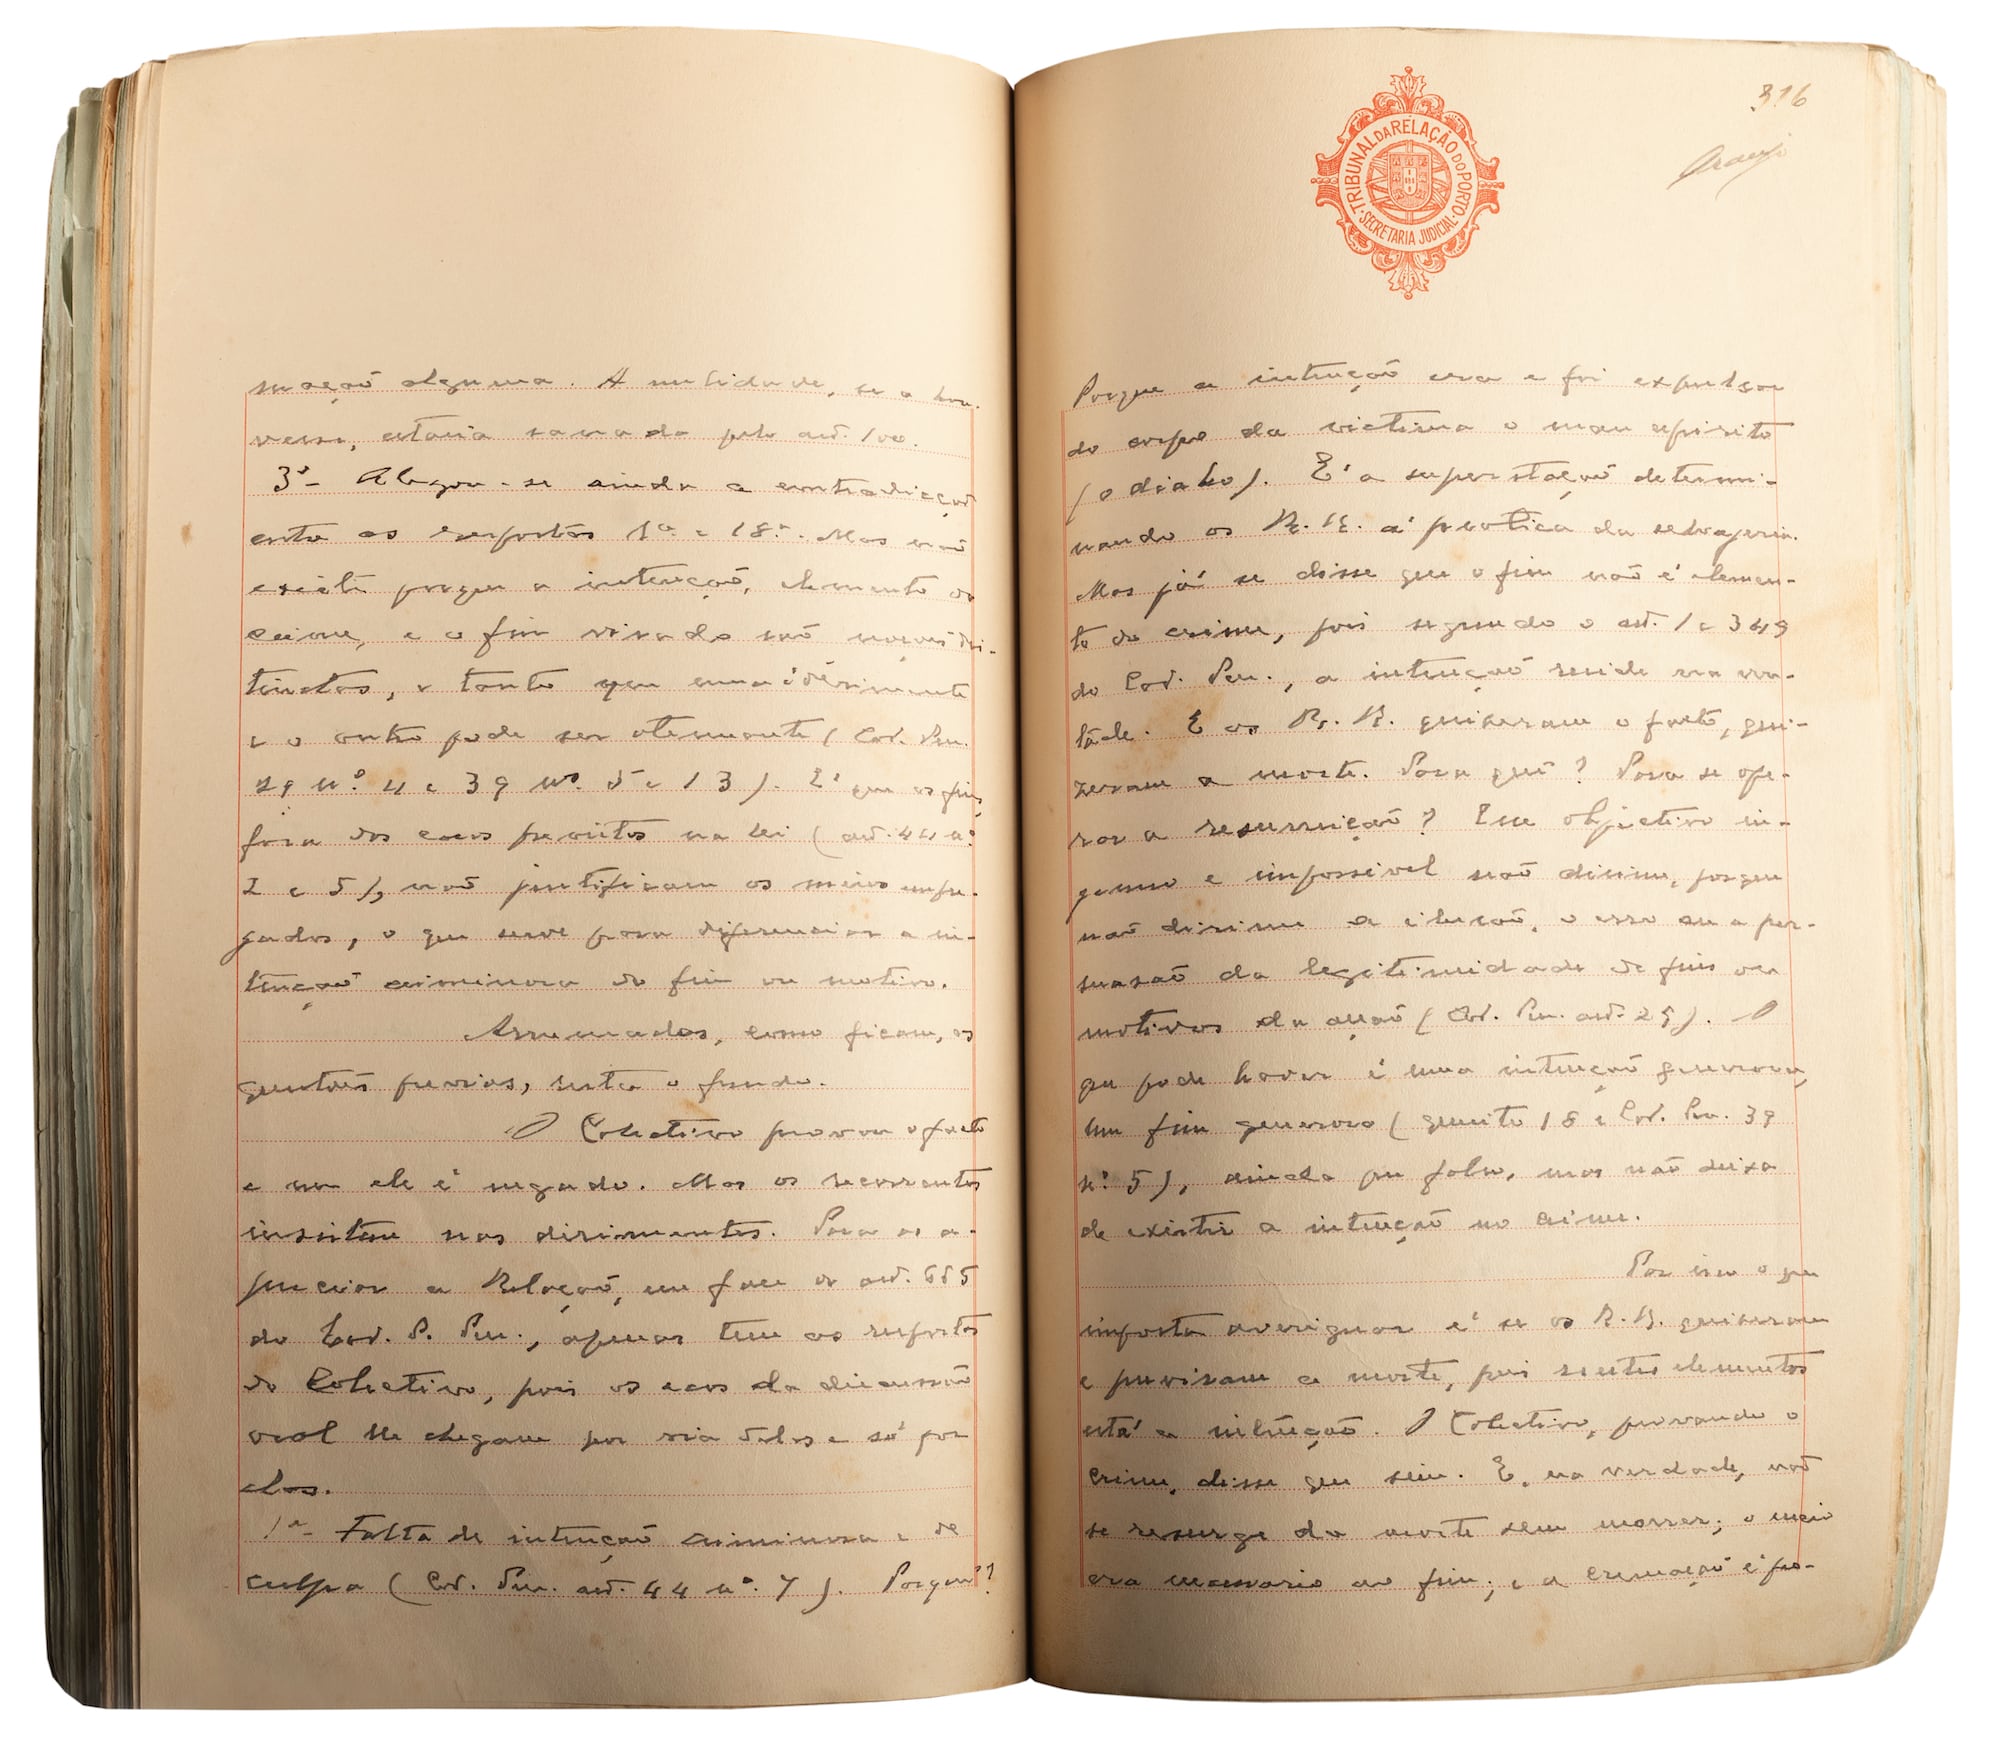 mação alguma. A nulidade, se a hou-
vesse, estaria sanada pelo art. 100.
3º - Alegou-se ainda a contradicção
entre as respostas 1ª e 18ª. Mas não
existe porque a intenção, elemento do
crime, e o fim visado são noções dis-
tinctas, e tanto que uma é dirimente
e o outro pode ser atenuante (Cod. Pen.
29 nº. 4 e 39 nos 5 e 13). E' que os fins,
fora dos casos previstos na lei (art. 44 nº
2 e 5), não justificam os meios empre-
gados, o que serve para diferenciar a in-
tenção criminosa do fim ou motivo.
Arrumadas, como ficam, as
questões previas, resta o fundo.
O Colectivo provou o facto
e nem ele é negado. Mas os recorrentes
insistem nas dirimentes. Para as a-
preciar a Relação, em face do art. 665
do Cod. P. Pen., apenas tem as respostas
do Colectivo, pois os ecos da discussão
oral lhe chegam por via delas e só por
elas.
1ª - Falta de intenção criminosa e de
culpa (Cod. Pen. art. 44 nº. 7). Porquê?
TRIBUNAL DA RELAÇÃO DO PORTO
SECRETARIA JUDICIAL
316
Araujo
Porque a intenção era e foi expulsar
do corpo da victima o mau espirito
(o diabo). E' a superstição determi-
nando os R. R. á pratica da selvageria.
Mas já se disse que o fim não é elemen-
to do crime, pois segundo o art. 1 e 349
do Cod. Pen., a intenção reside na von-
tade. E os R. R. quiseram o facto, qui-
zeram a morte. Para quê? Para se ope-
rar a resurreição? Esse objectivo in-
genuo e impossivel não dirime, porque
não dirime a ilusão, o erro ou a per-
suasão da legitimidade de fins ou
motivos da acção (Cod. Pen. art. 29). O
que pode haver é uma intenção generosa,
um fim generoso (quesito 18 e Cod. Pen. 39
nº. 5), ainda que falso, mas não deixa
de existir a intenção no crime.
Por isso o que
importa averiguar é se os R. R. quiseram
e previram a morte, pois nestes elementos
está a intenção. O Colectivo, provando o
crime, disse que sim. E, na verdade, não
se resurge da morte sem morrer; o meio
era necessario ao fim; e a cremação é pro-